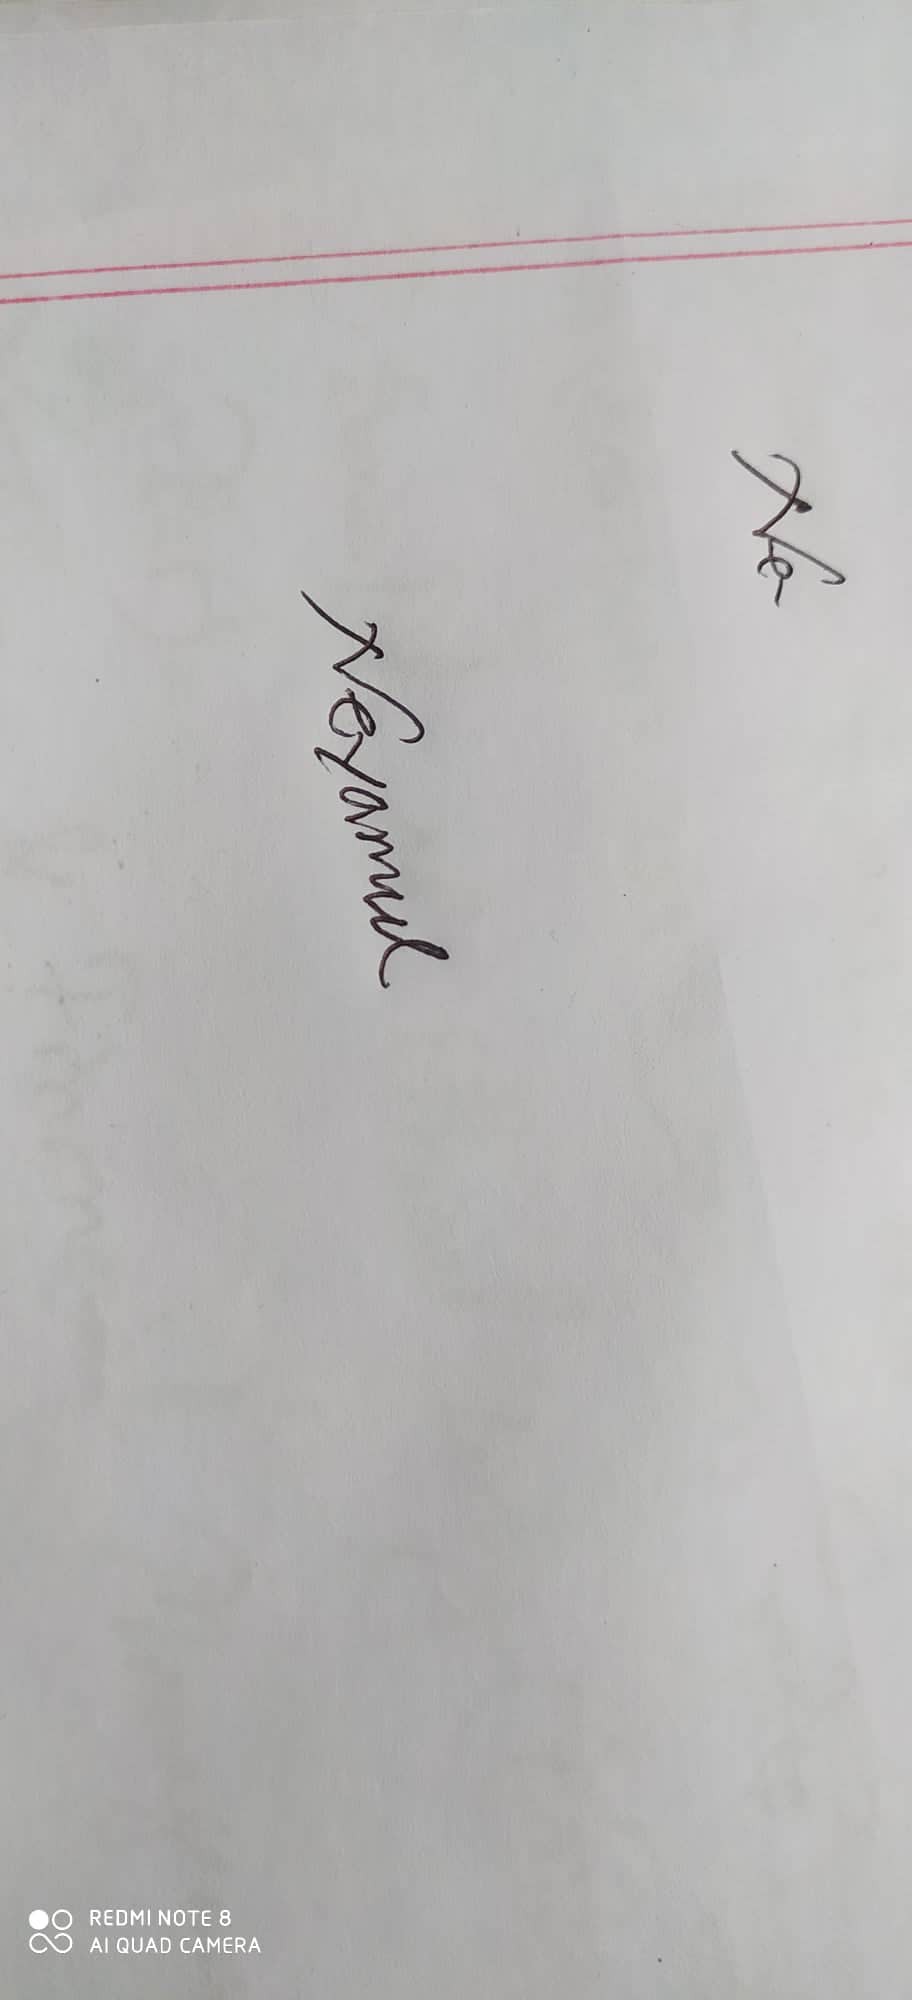 Ne
Neyamul
REDMI NOTE 8
AI QUAD CAMERA